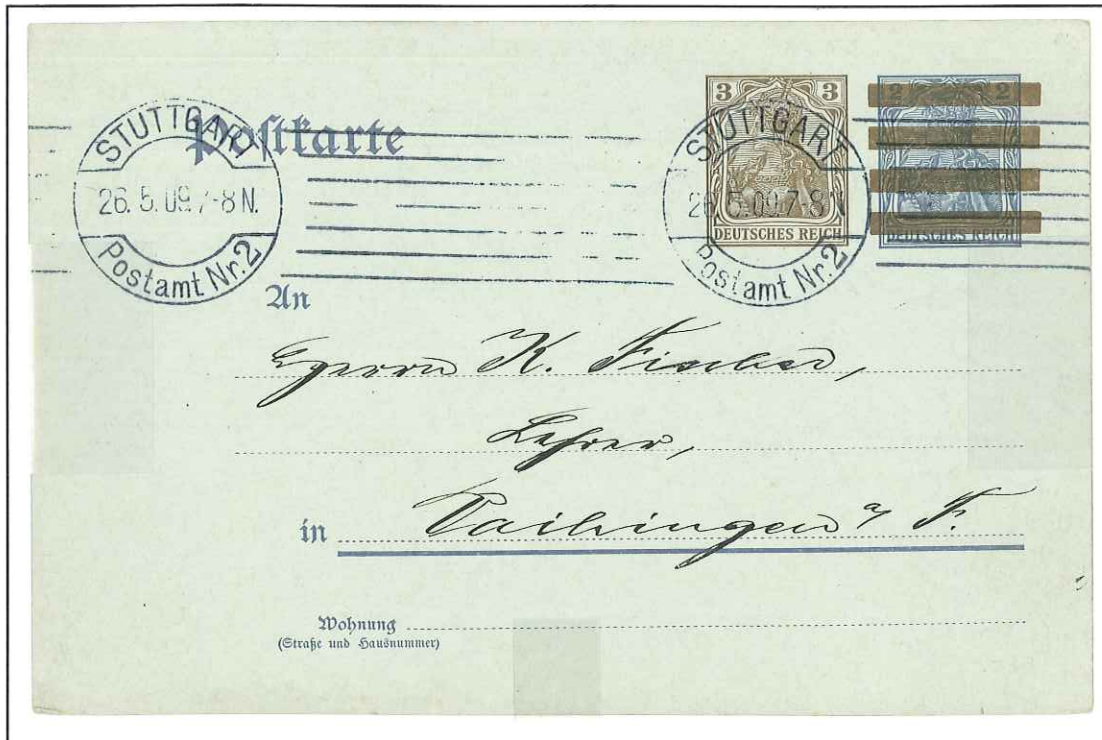 STUTTGART
26. 5. 09. 7-8 N.
Postamt Nr. 2
Postkarte
3 3
DEUTSCHES REICH
STUTTGART
26. 5. 09. 7-8 N
Postamt Nr. 2
2 2
DEUTSCHES REICH
An
Herrn K. Fischer,
Lehrer,
in Vaihingen a/F.
Wohnung
(Straße und Hausnummer)